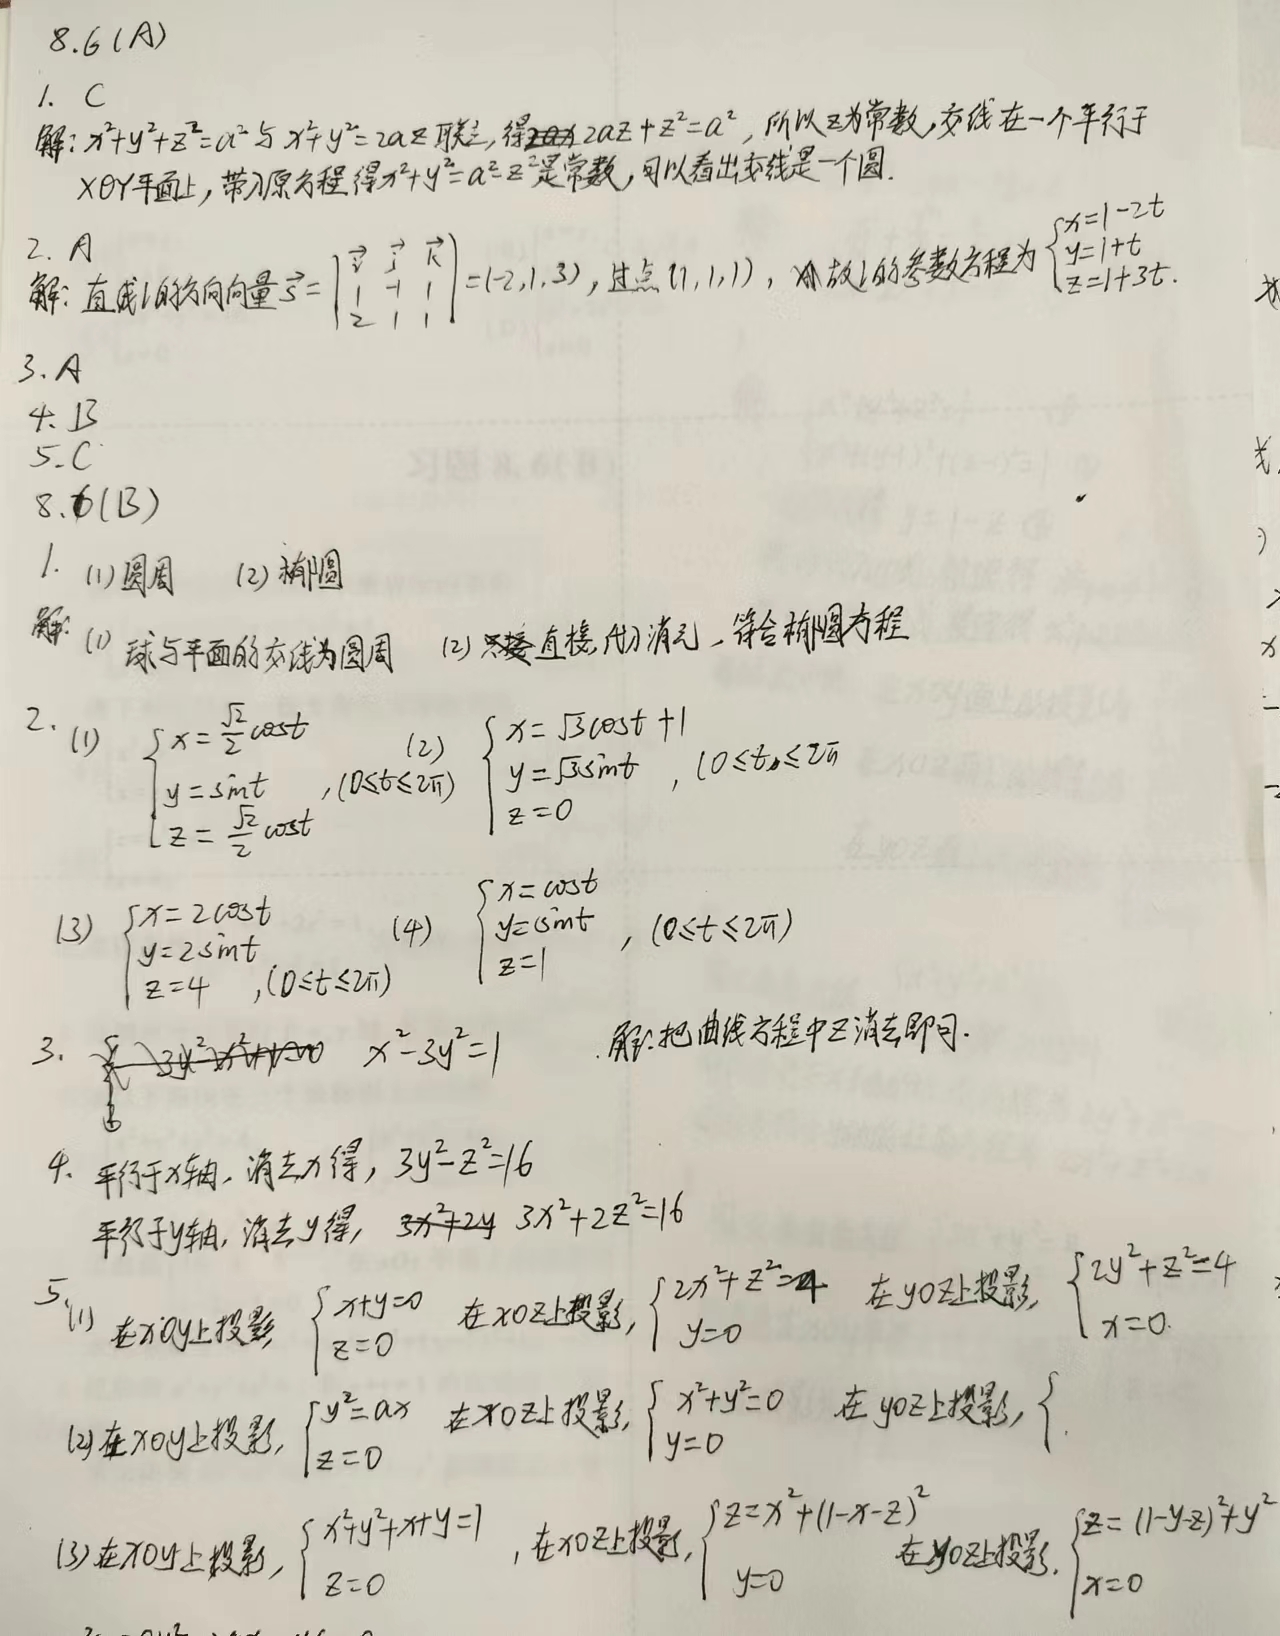 8.6(A)
1. C
解: x²+y²+z²=a² 与 x²+y²=2az 联立, 得 2az+z²=a², 所以z为常数, 交线在一个平行于
XOY平面上, 带入原方程得x²+y²=a²-z²是常数, 可以看出交线是一个圆.
2. A
解: 直线l的方向向量 s⃗ = | i⃗ j⃗ k⃗ ; 1 -1 1 ; 2 1 1 | =(-2,1,3), 过点(1,1,1), 故l的参数方程为 { x=1-2t ; y=1+t ; z=1+3t.
3. A
4. B
5. C
8.6(B)
1. (1) 圆周 (2) 椭圆
解: (1) 球与平面的交线为圆周 (2) 直接消元, 符合椭圆方程
2. (1) { x=√2/2 cost ; y=sint ; z=√2/2 cost , (0≤t≤2π) (2) { x=√3cost+1 ; y=√3sint ; z=0 , (0≤t≤2π)
(3) { x=2cost ; y=2sint ; z=4 , (0≤t≤2π) (4) { x=cost ; y=sint ; z=1 , (0≤t≤2π)
3. x²-3y²=1 解: 把曲线方程中z消去即可.
4. 平行于x轴, 消去x得, 3y²-z²=16
平行于y轴, 消去y得, 3x²+2z²=16
5. (1) 在xoy上投影 { x+y=0 ; z=0 在xoz上投影, { 2x²+z²=4 ; y=0 在yoz上投影, { 2y²+z²=4 ; x=0.
(2) 在xoy上投影, { y²=ax ; z=0 在xoz上投影, { x²+y²=0 ; y=0 在yoz上投影, {
(3) 在xoy上投影, { x²+y²+x+y=1 ; z=0 , 在xoz上投影, { z=x²+(1-x-z)² ; y=0 在yoz上投影, { z=(1-y-z)²+y² ; x=0